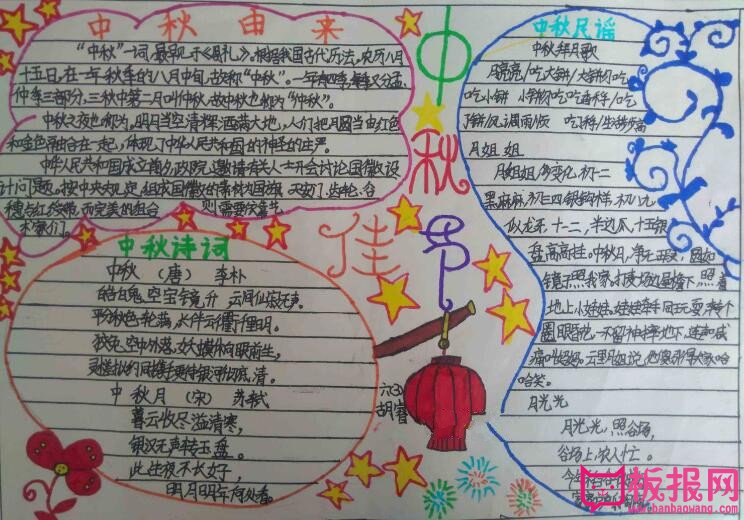 中秋由来
"中秋"一词,最早见于《周礼》。根据我国古代历法,农历八月
十五日,在一年秋季的八月中旬,故称"中秋"。一年有四季,每季又分孟、
仲、季三部分,三秋中第二月叫仲秋,故中秋也称为"仲秋"。
中秋之夜也称为,明月当空清辉洒满大地,人们把月圆当
和金色
在一起,体现了中华人民共和国的神圣的庄严。
中华人民共和国成立
政院,邀请有关人士开会讨论国徽设
计问题,按中央规定,组成国徽的素材为国旗、天安门、齿轮、谷
穗与红绶带,而完美的组合
则需要
中秋佳节
中秋诗词
中秋 (唐) 李朴
皓魄
空宝镜升 云间仙籁寂无声。
平分秋色一轮满,长伴云衢千里明。
狡兔空
外落,妖蟆休向眼前生。
灵槎拟约同携手,更待银河彻底清。
中秋月 (宋) 苏轼
暮云收尽溢清寒,
银汉无声转玉盘。
此生此夜不长好,
明月明年何处看。
六(3)
胡睿
中秋民谣
中秋拜月歌
月亮亮/吃大饼/大饼
吃
吃小饼 小饼
吃
吃香芋/吃
月姐姐
月姐姐,多变化,初一二
黑麻麻,初三四银钩样,初八九
似龙牙,十一二,半边瓜,十五银
盘高高挂。中秋月,净无瑕,圆如
镜子照我家。打麦场边屋檐下,照着
地上小娃娃。娃娃牵手同玩耍,转个
圈眼昏花,一不留神摔地下,连声喊
痛叫妈妈。云里月姐说他傻,引得大家哈
哈笑。
月光光
月光光,照谷场,
谷场上,农人忙。
今年
板报网
www.banbaowang.com